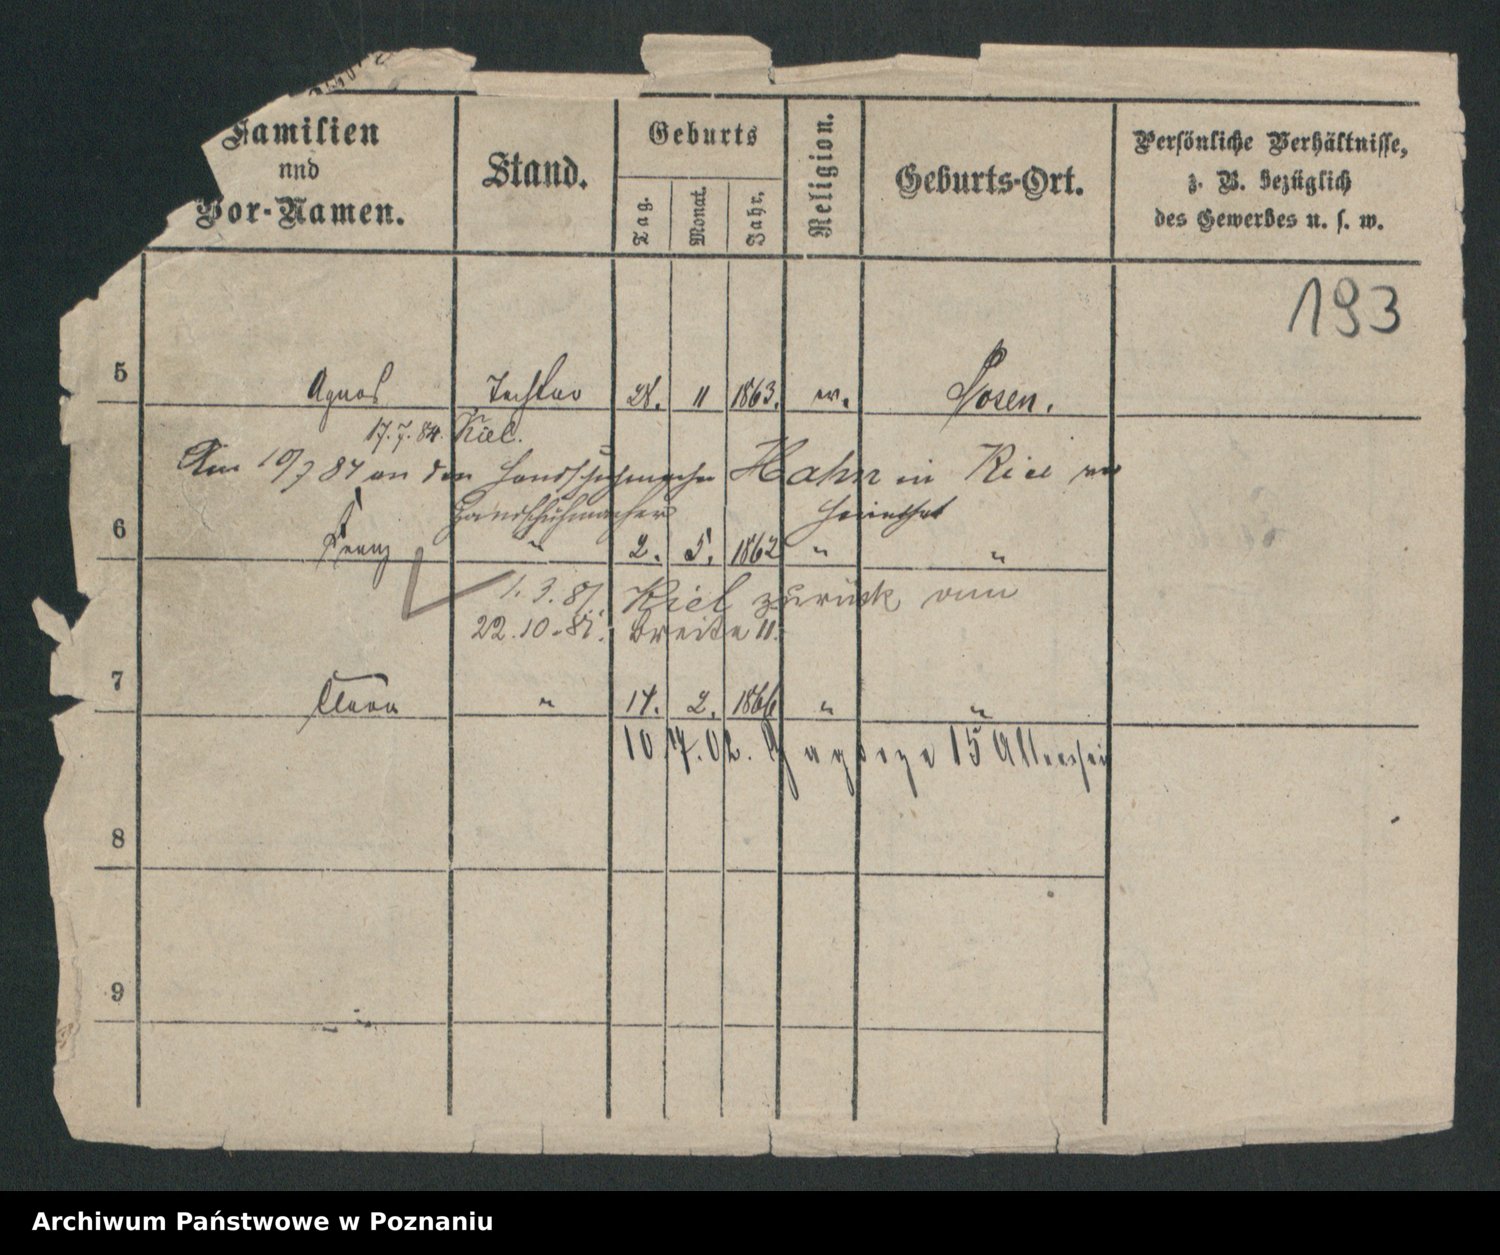 Familien
und
Vor-Namen.
Stand.
Geburts
Tag.
Monat.
Jahr.
Religion.
Geburts-Ort.
Persönliche Verhältnisse,
z. B. bezüglich
des Gewerbes u. s. w.
193
5 Agnes Tochter 28. 11 1863. ev. Posen.
17.7.84. Kiel.
Am 19/7 84 an den Handschuhmacher Hahn in Kiel ver
Handschuhmacher heirathet
6 Franz " 2. 5. 1862 " "
1.3.87. Kiel zurück vom
22.10.87. Breite 11.
7 Clara " 14. 2. 1866 " "
10 4.02. 15
8
9
Archiwum Państwowe w Poznaniu